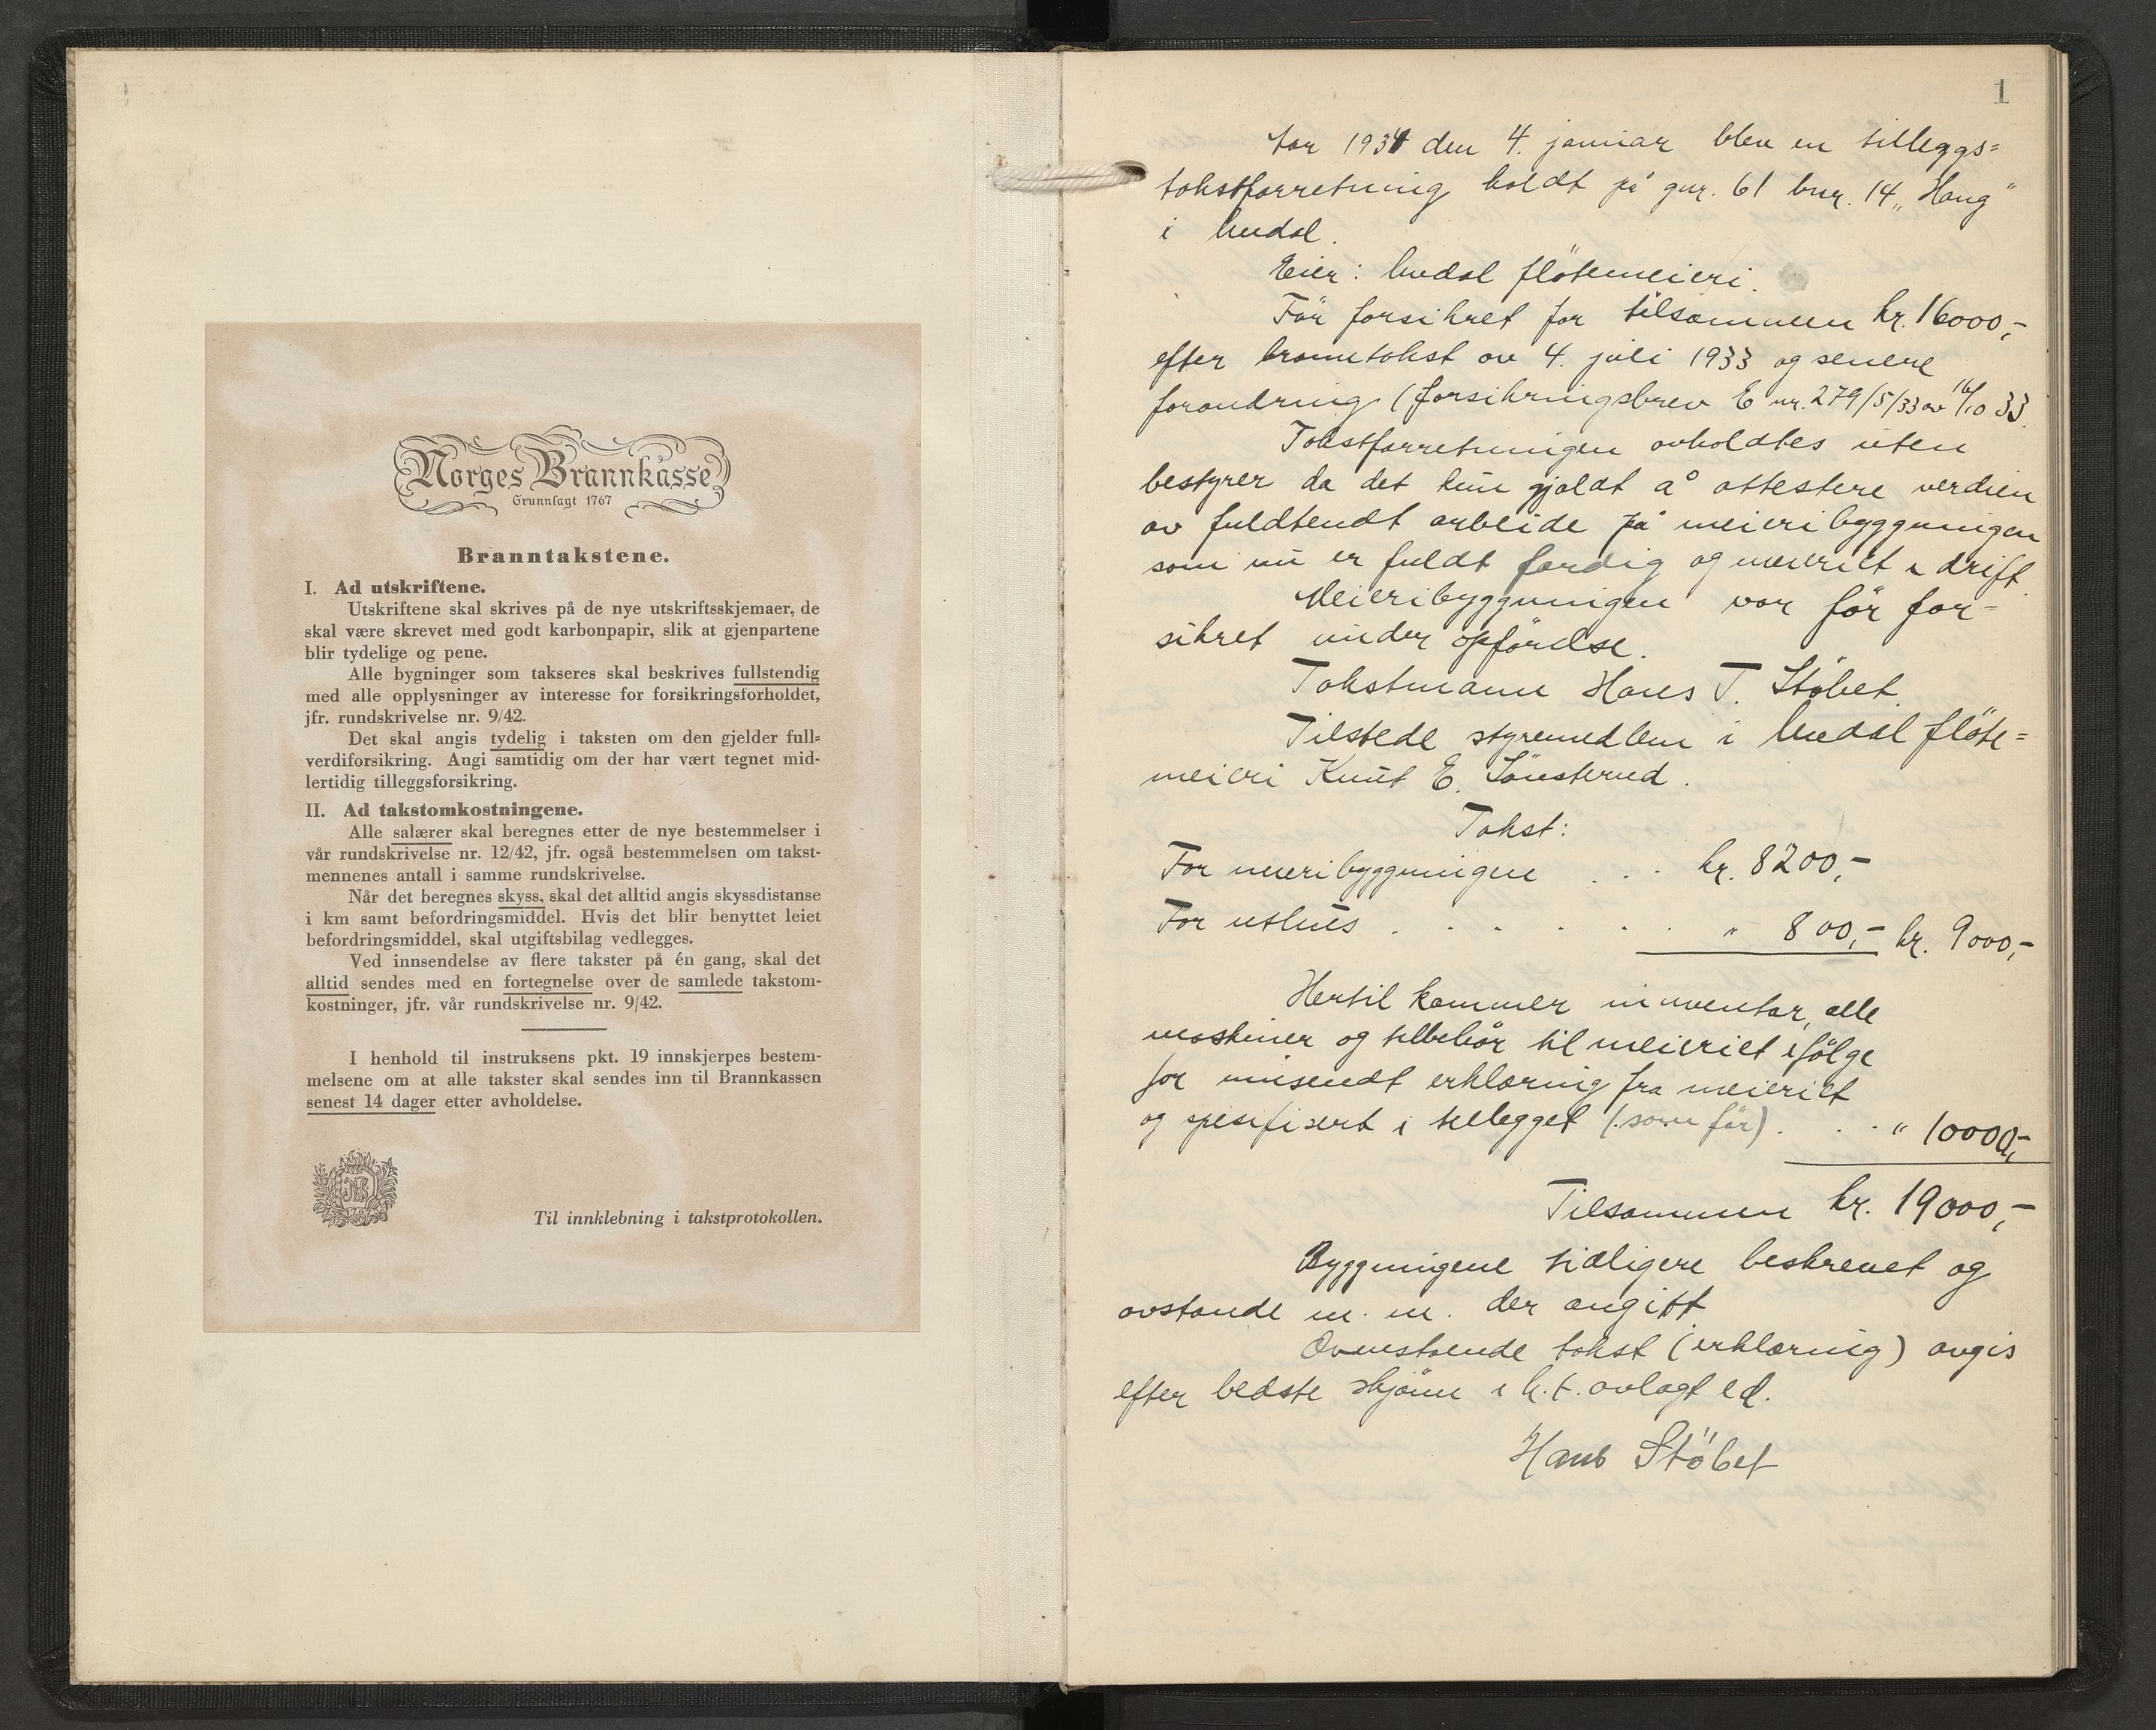 Norges Brannkasse
Grunnlagt 1767
Branntakstene.
I. Ad utskriftene.
Utskriftene skal skrives på de nye utskriftsskjemaer, de
skal være skrevet med godt karbonpapir, slik at gjenpartene
blir tydelige og pene.
Alle bygninger som takseres skal beskrives fullstendig
med alle opplysninger av interesse for forsikringsforholdet,
jfr. rundskrivelse nr. 9/42.
Det skal angis tydelig i taksten om den gjelder full-
verdiforsikring. Angi samtidig om der har vært tegnet mid-
lertidig tilleggsforsikring.
II. Ad takstomkostningene.
Alle salærer skal beregnes etter de nye bestemmelser i
vår rundskrivelse nr. 12/42, jfr. også bestemmelsen om takst-
mennenes antall i samme rundskrivelse.
Når det beregnes skyss, skal det alltid angis skyssdistanse
i km samt befordringsmiddel. Hvis det blir benyttet leiet
befordringsmiddel, skal utgiftsbilag vedlegges.
Ved innsendelse av flere takster på én gang, skal det
alltid sendes med en fortegnelse over de samlede takstom-
kostninger, jfr. vår rundskrivelse nr. 9/42.
I henhold til instruksens pkt. 19 innskjerpes bestem-
melsene om at alle takster skal sendes inn til Brannkassen
senest 14 dager etter avholdelse.
Til innklebning i takstprotokollen.
1
År 1934 den 4. januar blev en tilleggs=
takstforretning holdt på gnr. 61 bnr. 14 „Haug"
i Uvdal.
Eier: Uvdal flötemeieri.
För forsikret for tilsammen kr. 16000,-
efter branntakst av 4. juli 1933 og senere
forandring (forsikringsbrev E nr. 279/5/33 av 16/10 33.
Takstforretningen avholdtes uten
bestyrer da det kun gjaldt å attestere verdien
av fuldtendt arbeide på meieribyggningen
som nu er fuldt færdig og meieriet i drift.
Meieribyggningen var för for=
sikret under opförelse.
Takstmann Hans T. Stöbet.
Tilstede styremedlem i Uvdal flöte=
meieri Knut E. Sönsterud.
Takst:
For meieribyggningen . . . kr. 8200,-
For uthus . . . . . . " 800,- kr. 9000,-
Hertil kommer inventar, alle
maskiner og tilbehör til meieriet ifölge
för innsendt erklæring fra meieriet
og spesifisert i tillegget (som för) . . . " 10000,-
Tilsammen kr. 19000,-
Byggningene tidligere beskrevet og
avstande m. m. der angitt.
Ovenstående takst (erklæring) avgis
efter bedste skjönn i h.t. avlagt ed.
Hans Stöbet